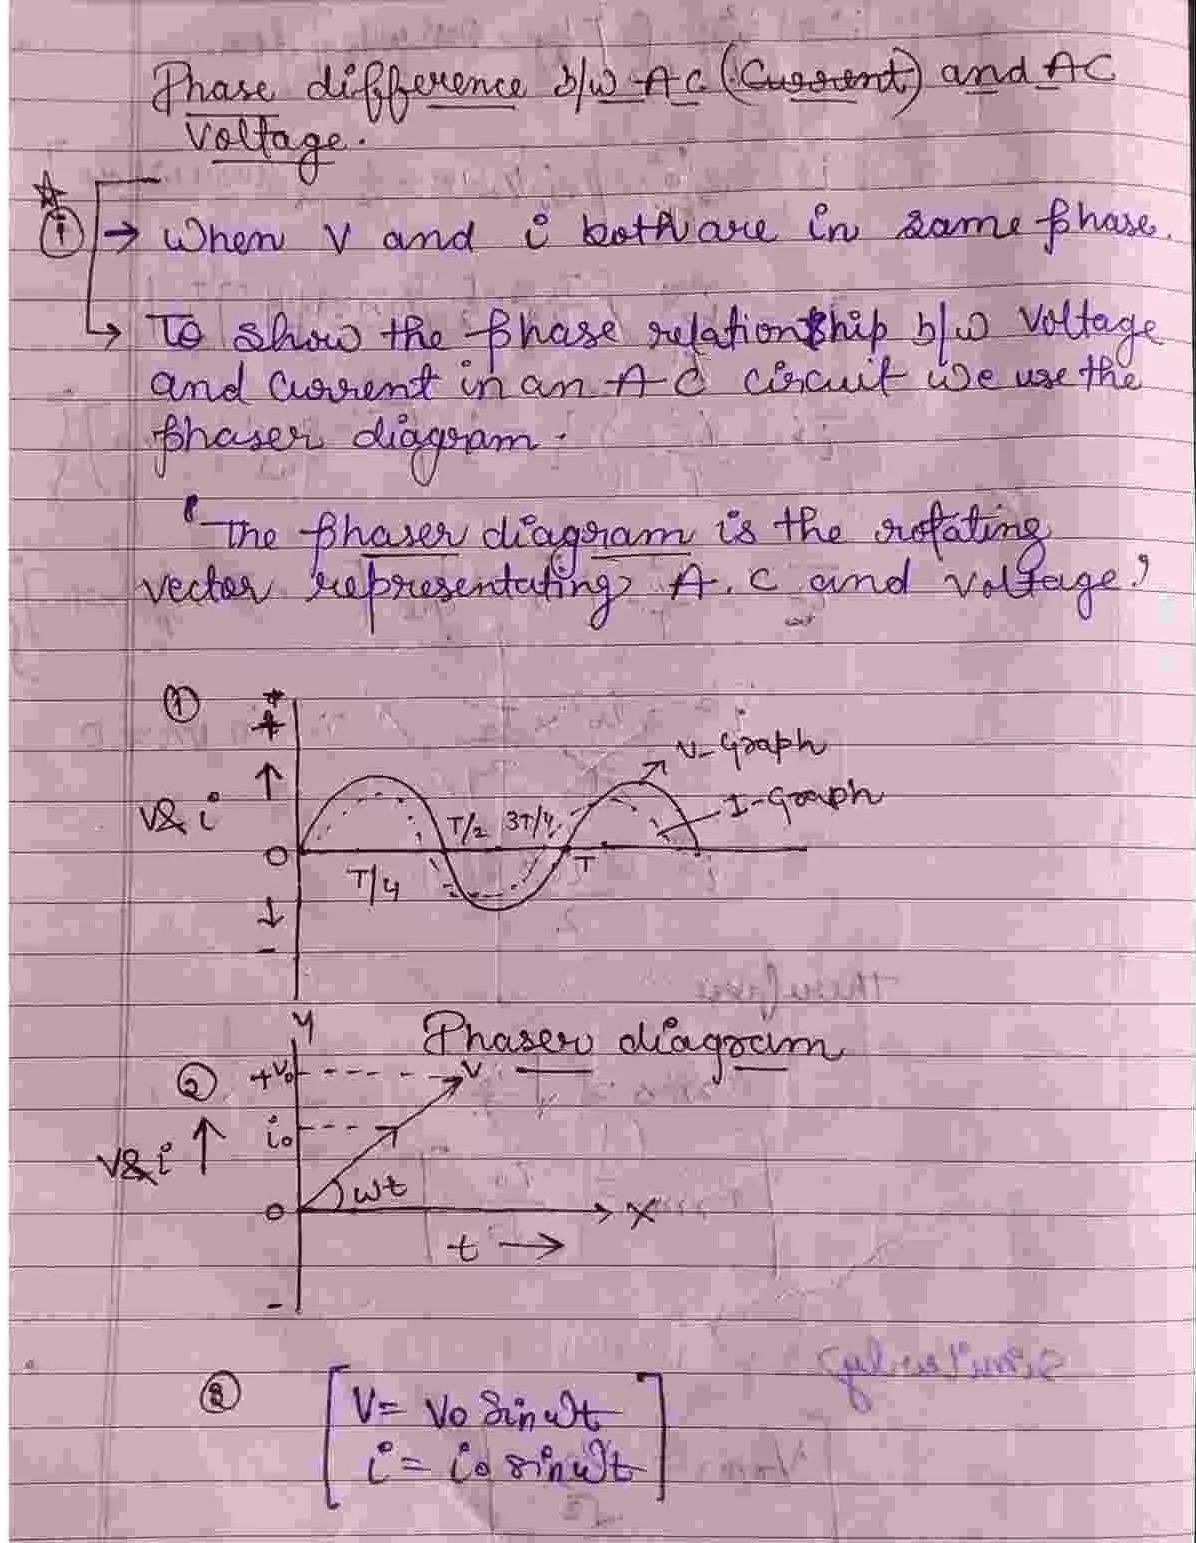 Phase difference b/w AC (Current) and AC
Voltage.
① → When V and i both are in same phase.
→ To show the phase relationship b/w Voltage
and Current in an AC circuit we use the
phaser diagram.
"The phaser diagram is the rotating
vector representating A.C and voltage"
①
+
V- Graph
V& i ↑
I-Graph
T/2 3T/4
O
T/4
T
↓
-
y
Phaser diagram
② +V₀
V
i₀
V& i ↑
ωt
O
X
t →
-
③
V = V₀ Sin ωt
i = i₀ sin ωt